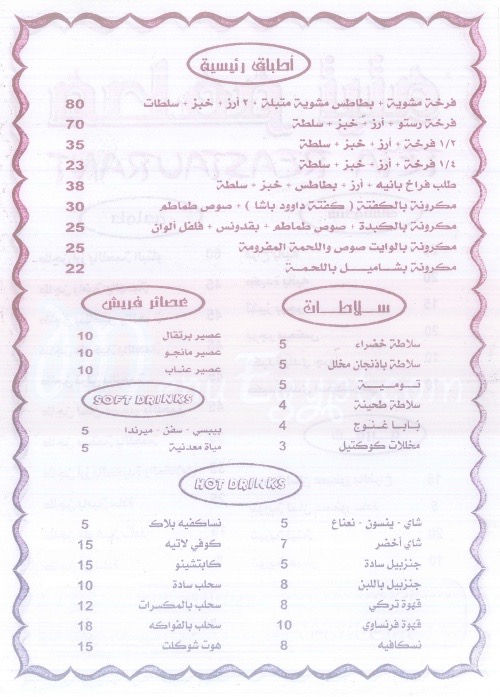 أطباق رئيسية
فرخة مشوية + بطاطس مشوية متبلة + ٢ أرز + خبز + سلطات 80
فرخة رستو + أرز + خبز + سلطة 70
١/٢ فرخة + أرز + خبز + سلطة 35
١/٤ فرخة + أرز + خبز + سلطة 23
طلب فراخ بانيه + أرز + بطاطس + خبز + سلطة 38
مكرونة بالكفتة ( كفتة داوود باشا ) + صوص طماطم 30
مكرونة بالكبدة + صوص طماطم + بقدونس + فلفل ألوان 25
مكرونة بالوايت صوص واللحمة المفرومة 25
مكرونة بشاميل باللحمة 22
سلاطات
سلاطة خضراء 5
سلاطة باذنجان مخلل 5
تومية 5
سلاطة طحينة 4
بابا غنوج 4
مخللات كوكتيل 3
عصائر فريش
عصير برتقال 10
عصير مانجو 10
عصير عناب 10
SOFT DRINKS
بيبسي - سفن - ميرندا 5
مياة معدنية 5
HOT DRINKS
شاي - ينسون - نعناع 5
شاي أخضر 7
جنزبيل سادة 5
جنزبيل باللبن 8
قهوة تركي 8
قهوة فرنساوي 10
نسكافيه 8
نساكفيه بلاك 5
كوفي لاتيه 15
كابتشينو 15
سحلب سادة 10
سحلب بالمكسرات 12
سحلب بالفواكه 18
هوت شوكلت 15